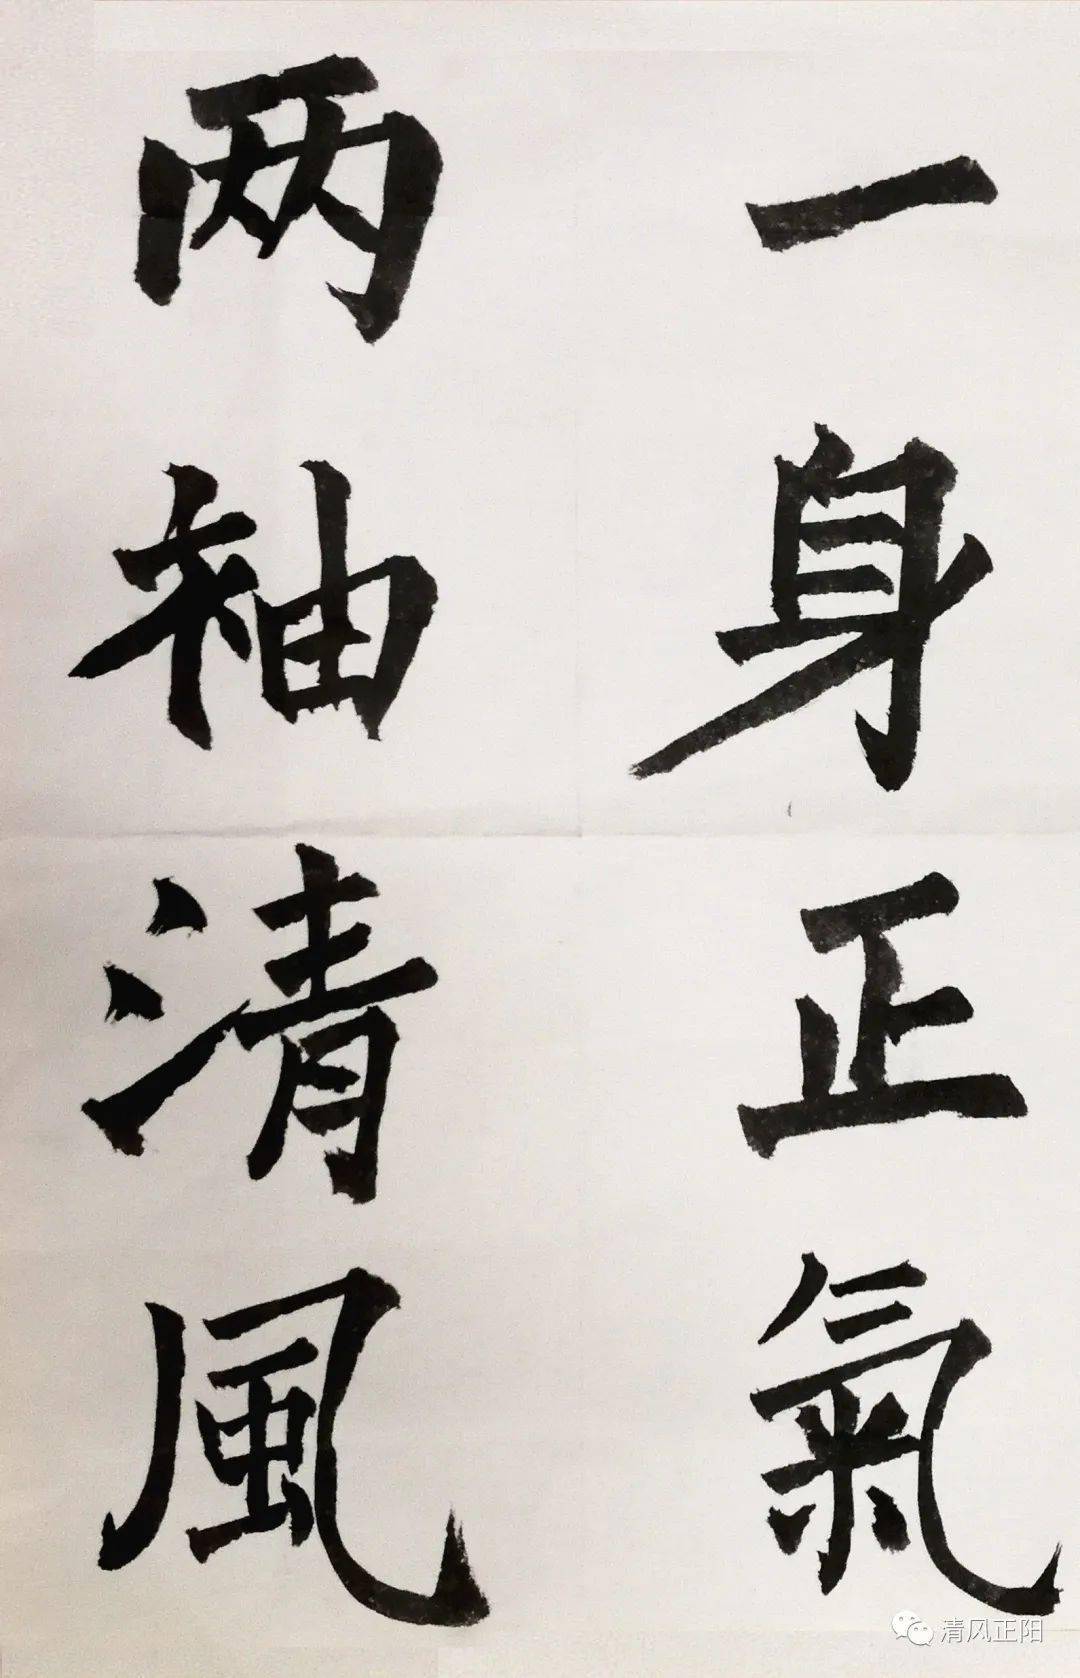 一身正氣
两袖清風
清风正阳